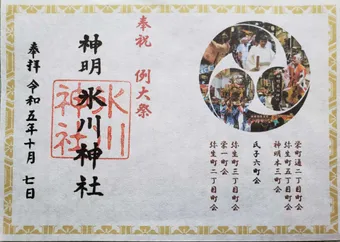 奉祝 例大祭
神明 氷川神社
氷川神社
奉拝 令和五年十月 七日
栄町通二丁目町会
弥生町五丁目町会
神明本三町会
氏子六町会
弥生町三丁目町会
栄一町会
弥生町二丁目町会